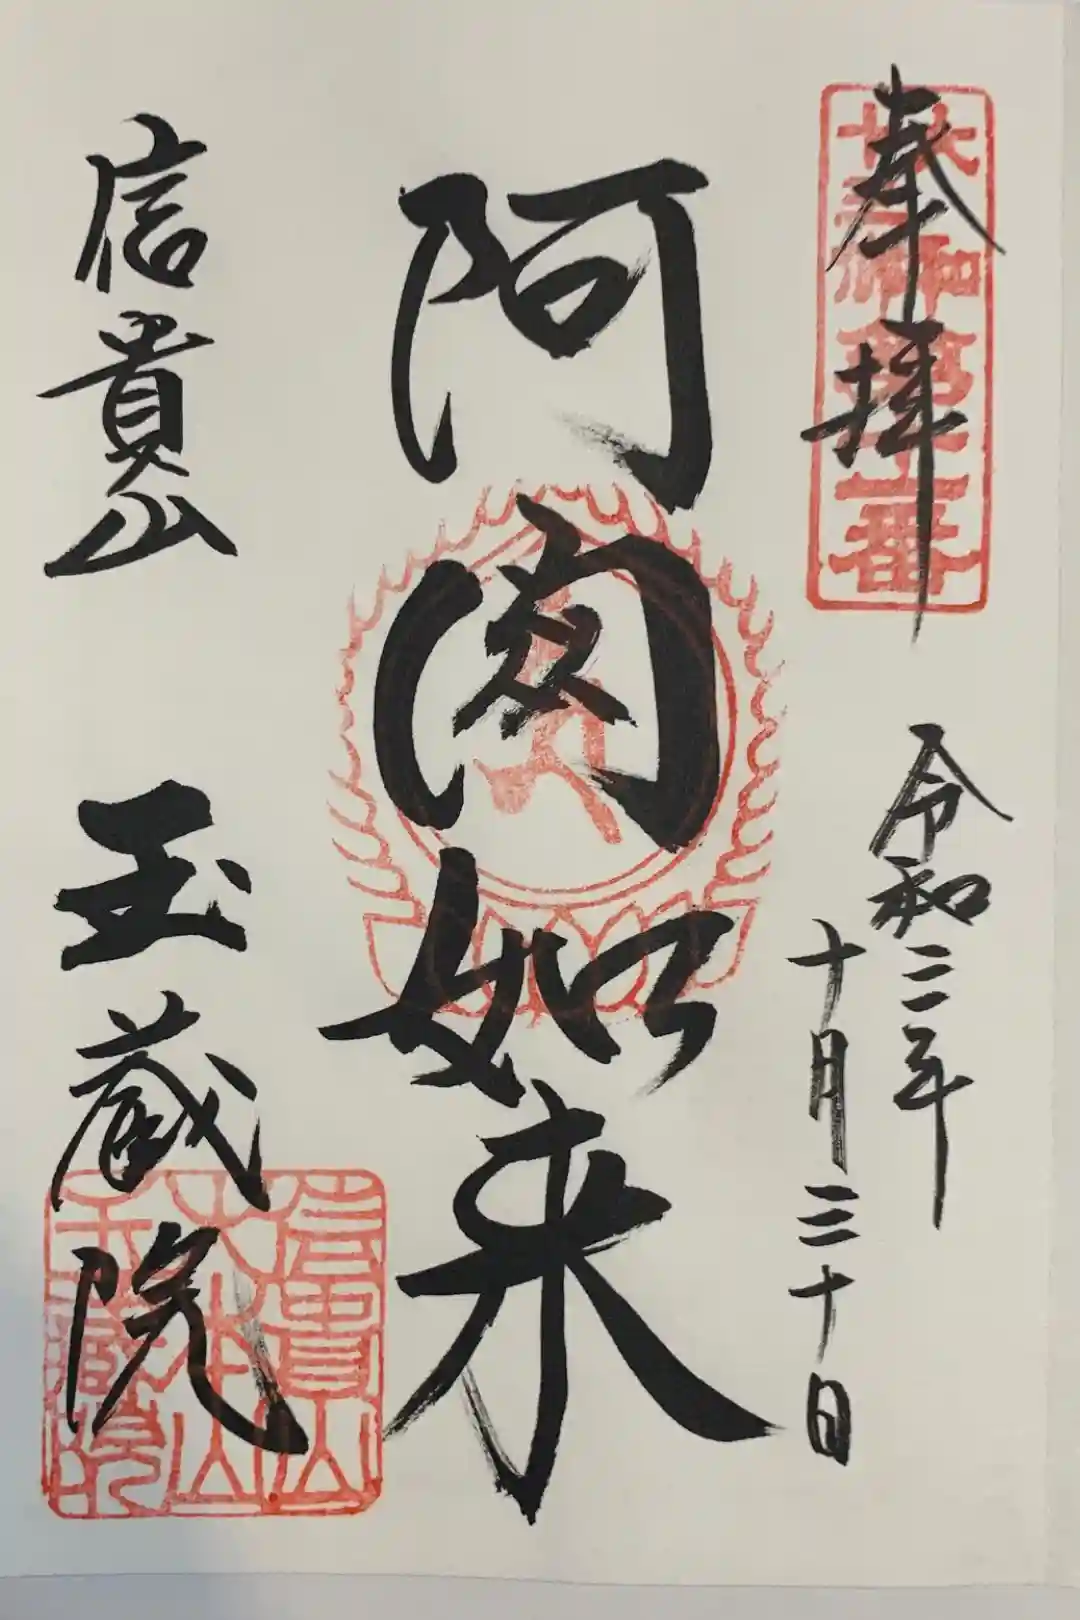 奉拝
令和二年
十月三十日
阿閦如来
信貴山
玉蔵院
信貴山
大本山
玉蔵院